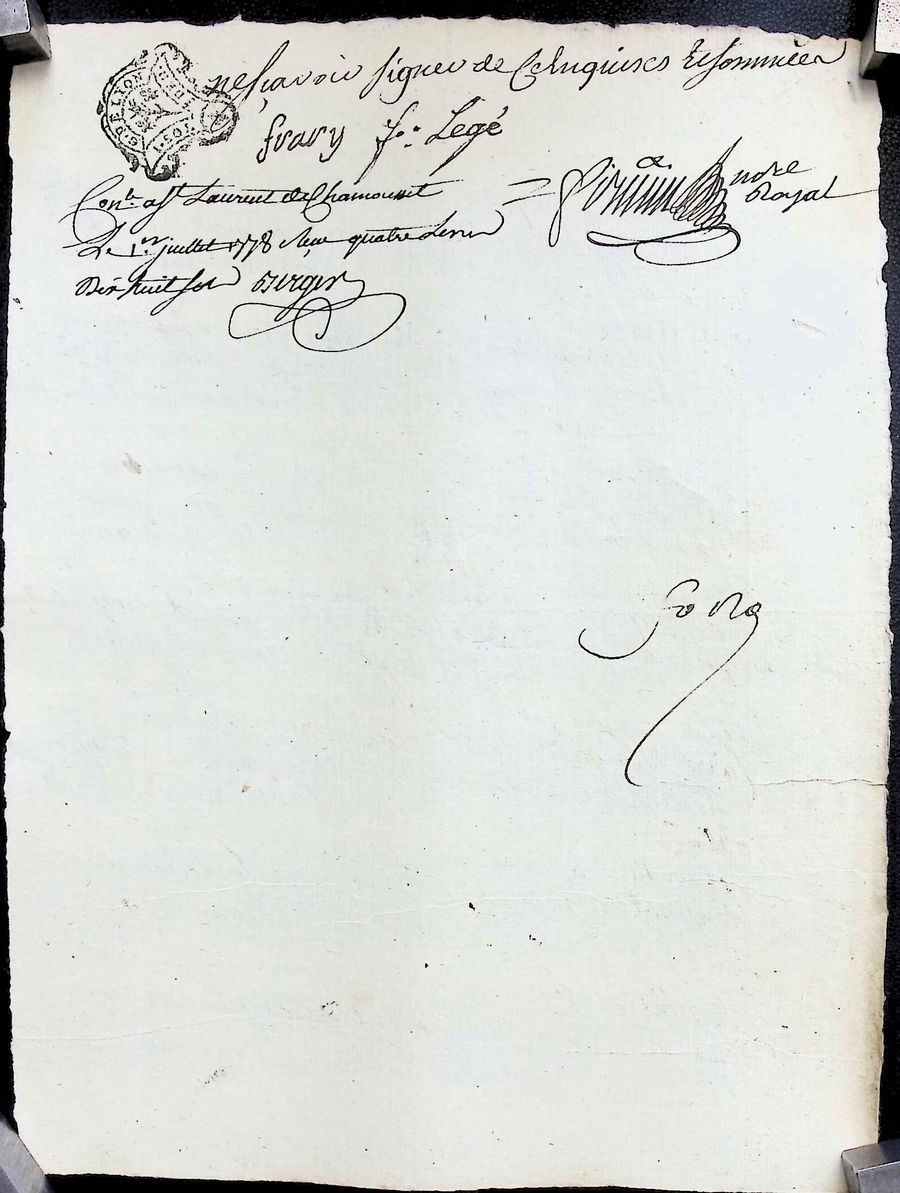 nesçavoir signer de Ce Enquises & sommées
frary fs: Legé
Conlé a St Laurent de Chamousset
Le 1er juillet 1778 Reçu quatre Livres
Dix huit sols Berger
nore
Royal